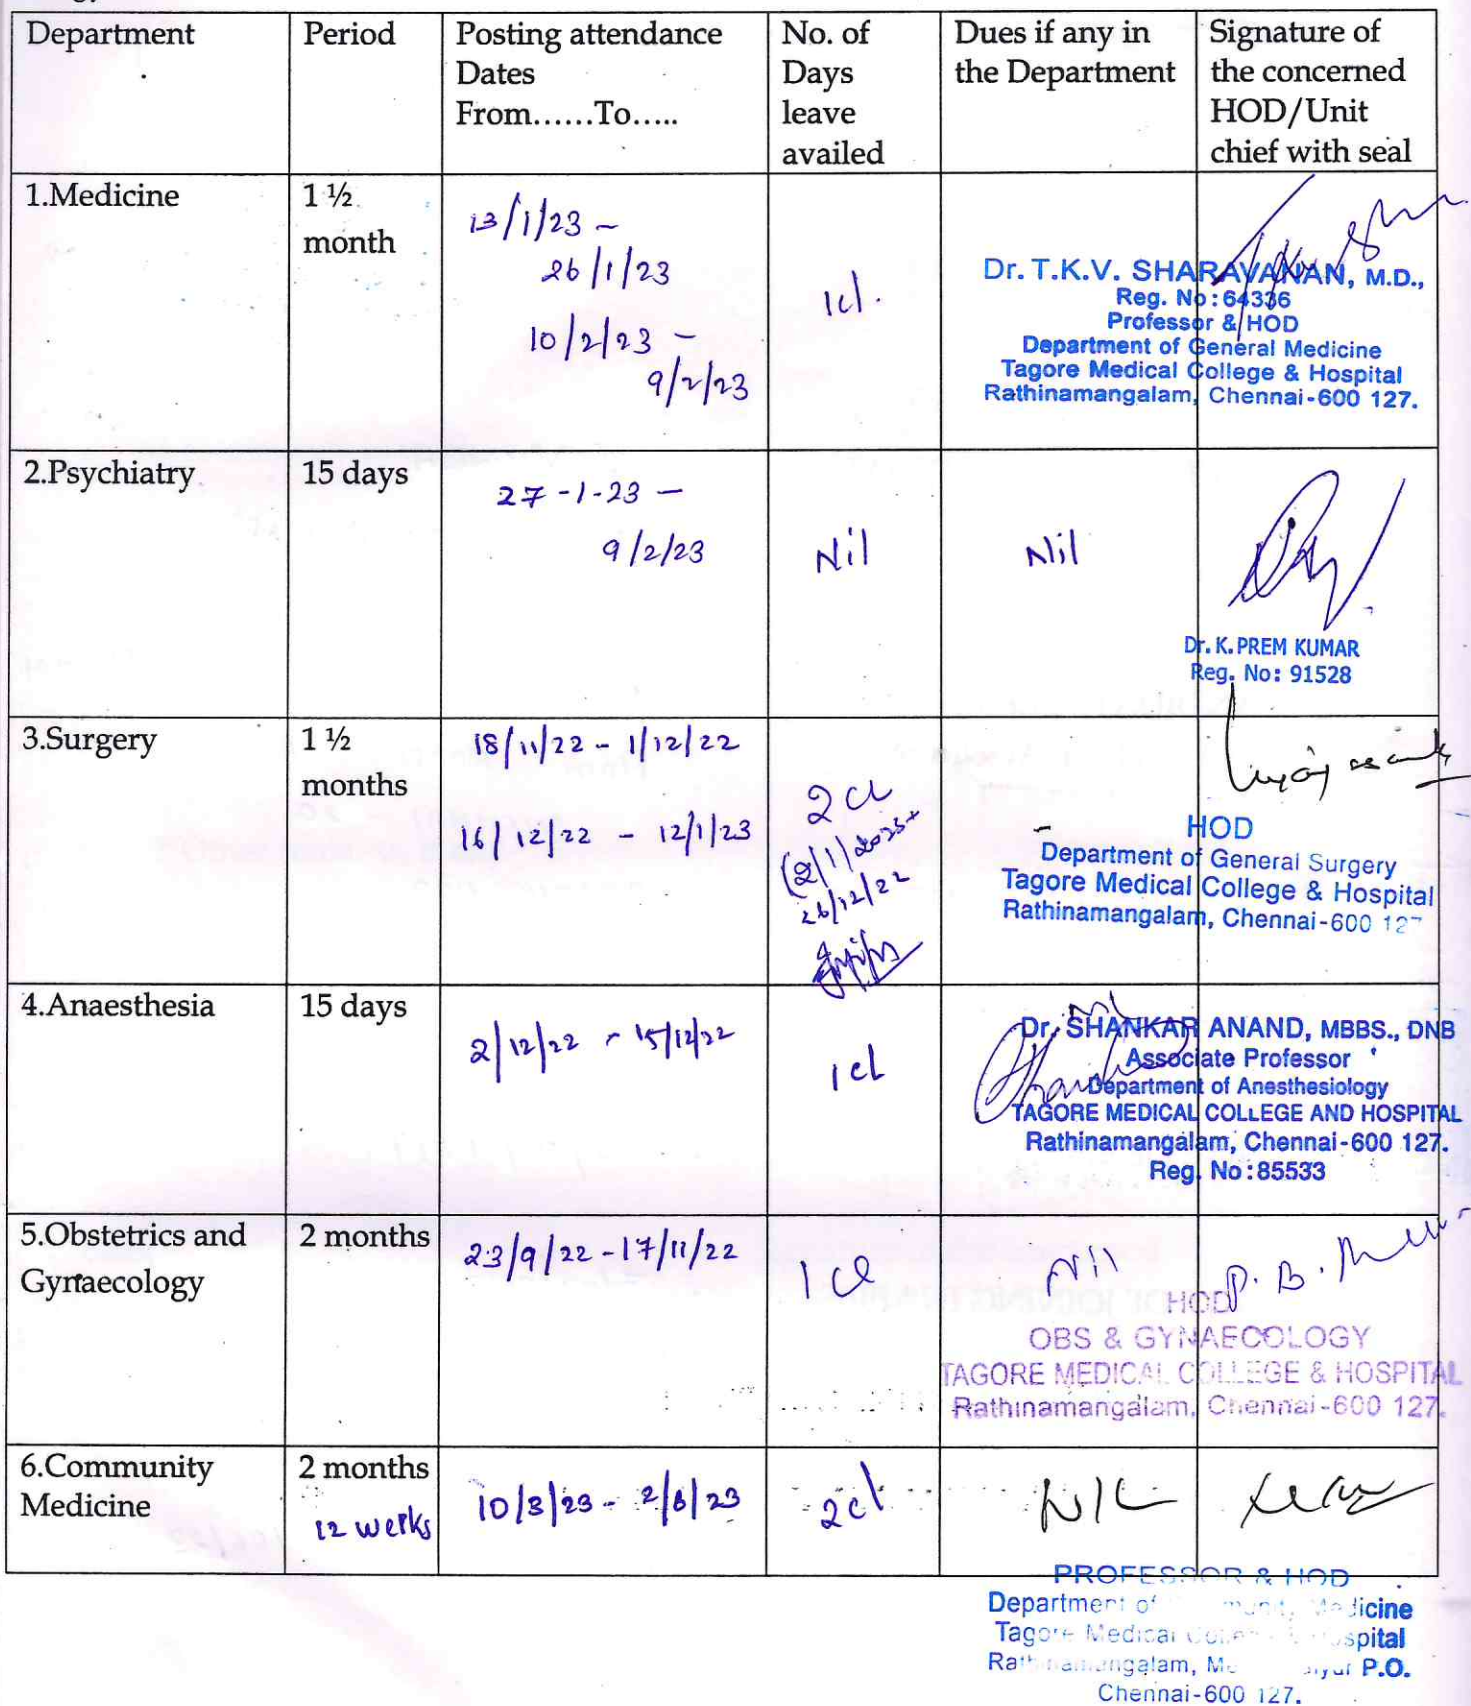 Department
Period
Posting attendance
Dates
From......To.....
No. of
Days
leave
availed
Dues if any in
the Department
Signature of
the concerned
HOD/Unit
chief with seal
1.Medicine
1 ½
month
13/1/23 –
26/1/23
10/2/23 –
9/2/23
1cl.
Dr. T.K.V. SHARAVANAN, M.D.,
Reg. No:64336
Professor & HOD
Department of General Medicine
Tagore Medical College & Hospital
Rathinamangalam, Chennai-600 127.
2.Psychiatry
15 days
27-1-23 –
9/2/23
Nil
Nil
Dr. K. PREM KUMAR
Reg. No: 91528
3.Surgery
1 ½
months
18/11/22 – 1/12/22
16/12/22 – 12/1/23
2 cl
(2/1/2023+
26/12/22
HOD
Department of General Surgery
Tagore Medical College & Hospital
Rathinamangalam, Chennai-600 127
4.Anaesthesia
15 days
2/12/22 – 15/12/22
1 cl
Dr. SHANKAR ANAND, MBBS., DNB
Associate Professor
Department of Anesthesiology
TAGORE MEDICAL COLLEGE AND HOSPITAL
Rathinamangalam, Chennai-600 127.
Reg. No:85533
5.Obstetrics and
Gynaecology
2 months
23/9/22 – 17/11/22
1 cl
Nil
P. B.
HOD
OBS & GYNAECOLOGY
TAGORE MEDICAL COLLEGE & HOSPITAL
Rathinamangalam, Chennai-600 127.
6.Community
Medicine
2 months
12 weeks
10/3/23 – 2/6/23
2cl
NIL
PROFESSOR & HOD
Department of Medicine
Tagore Medical Hospital
Rathinamangalam, P.O.
Chennai-600 127.